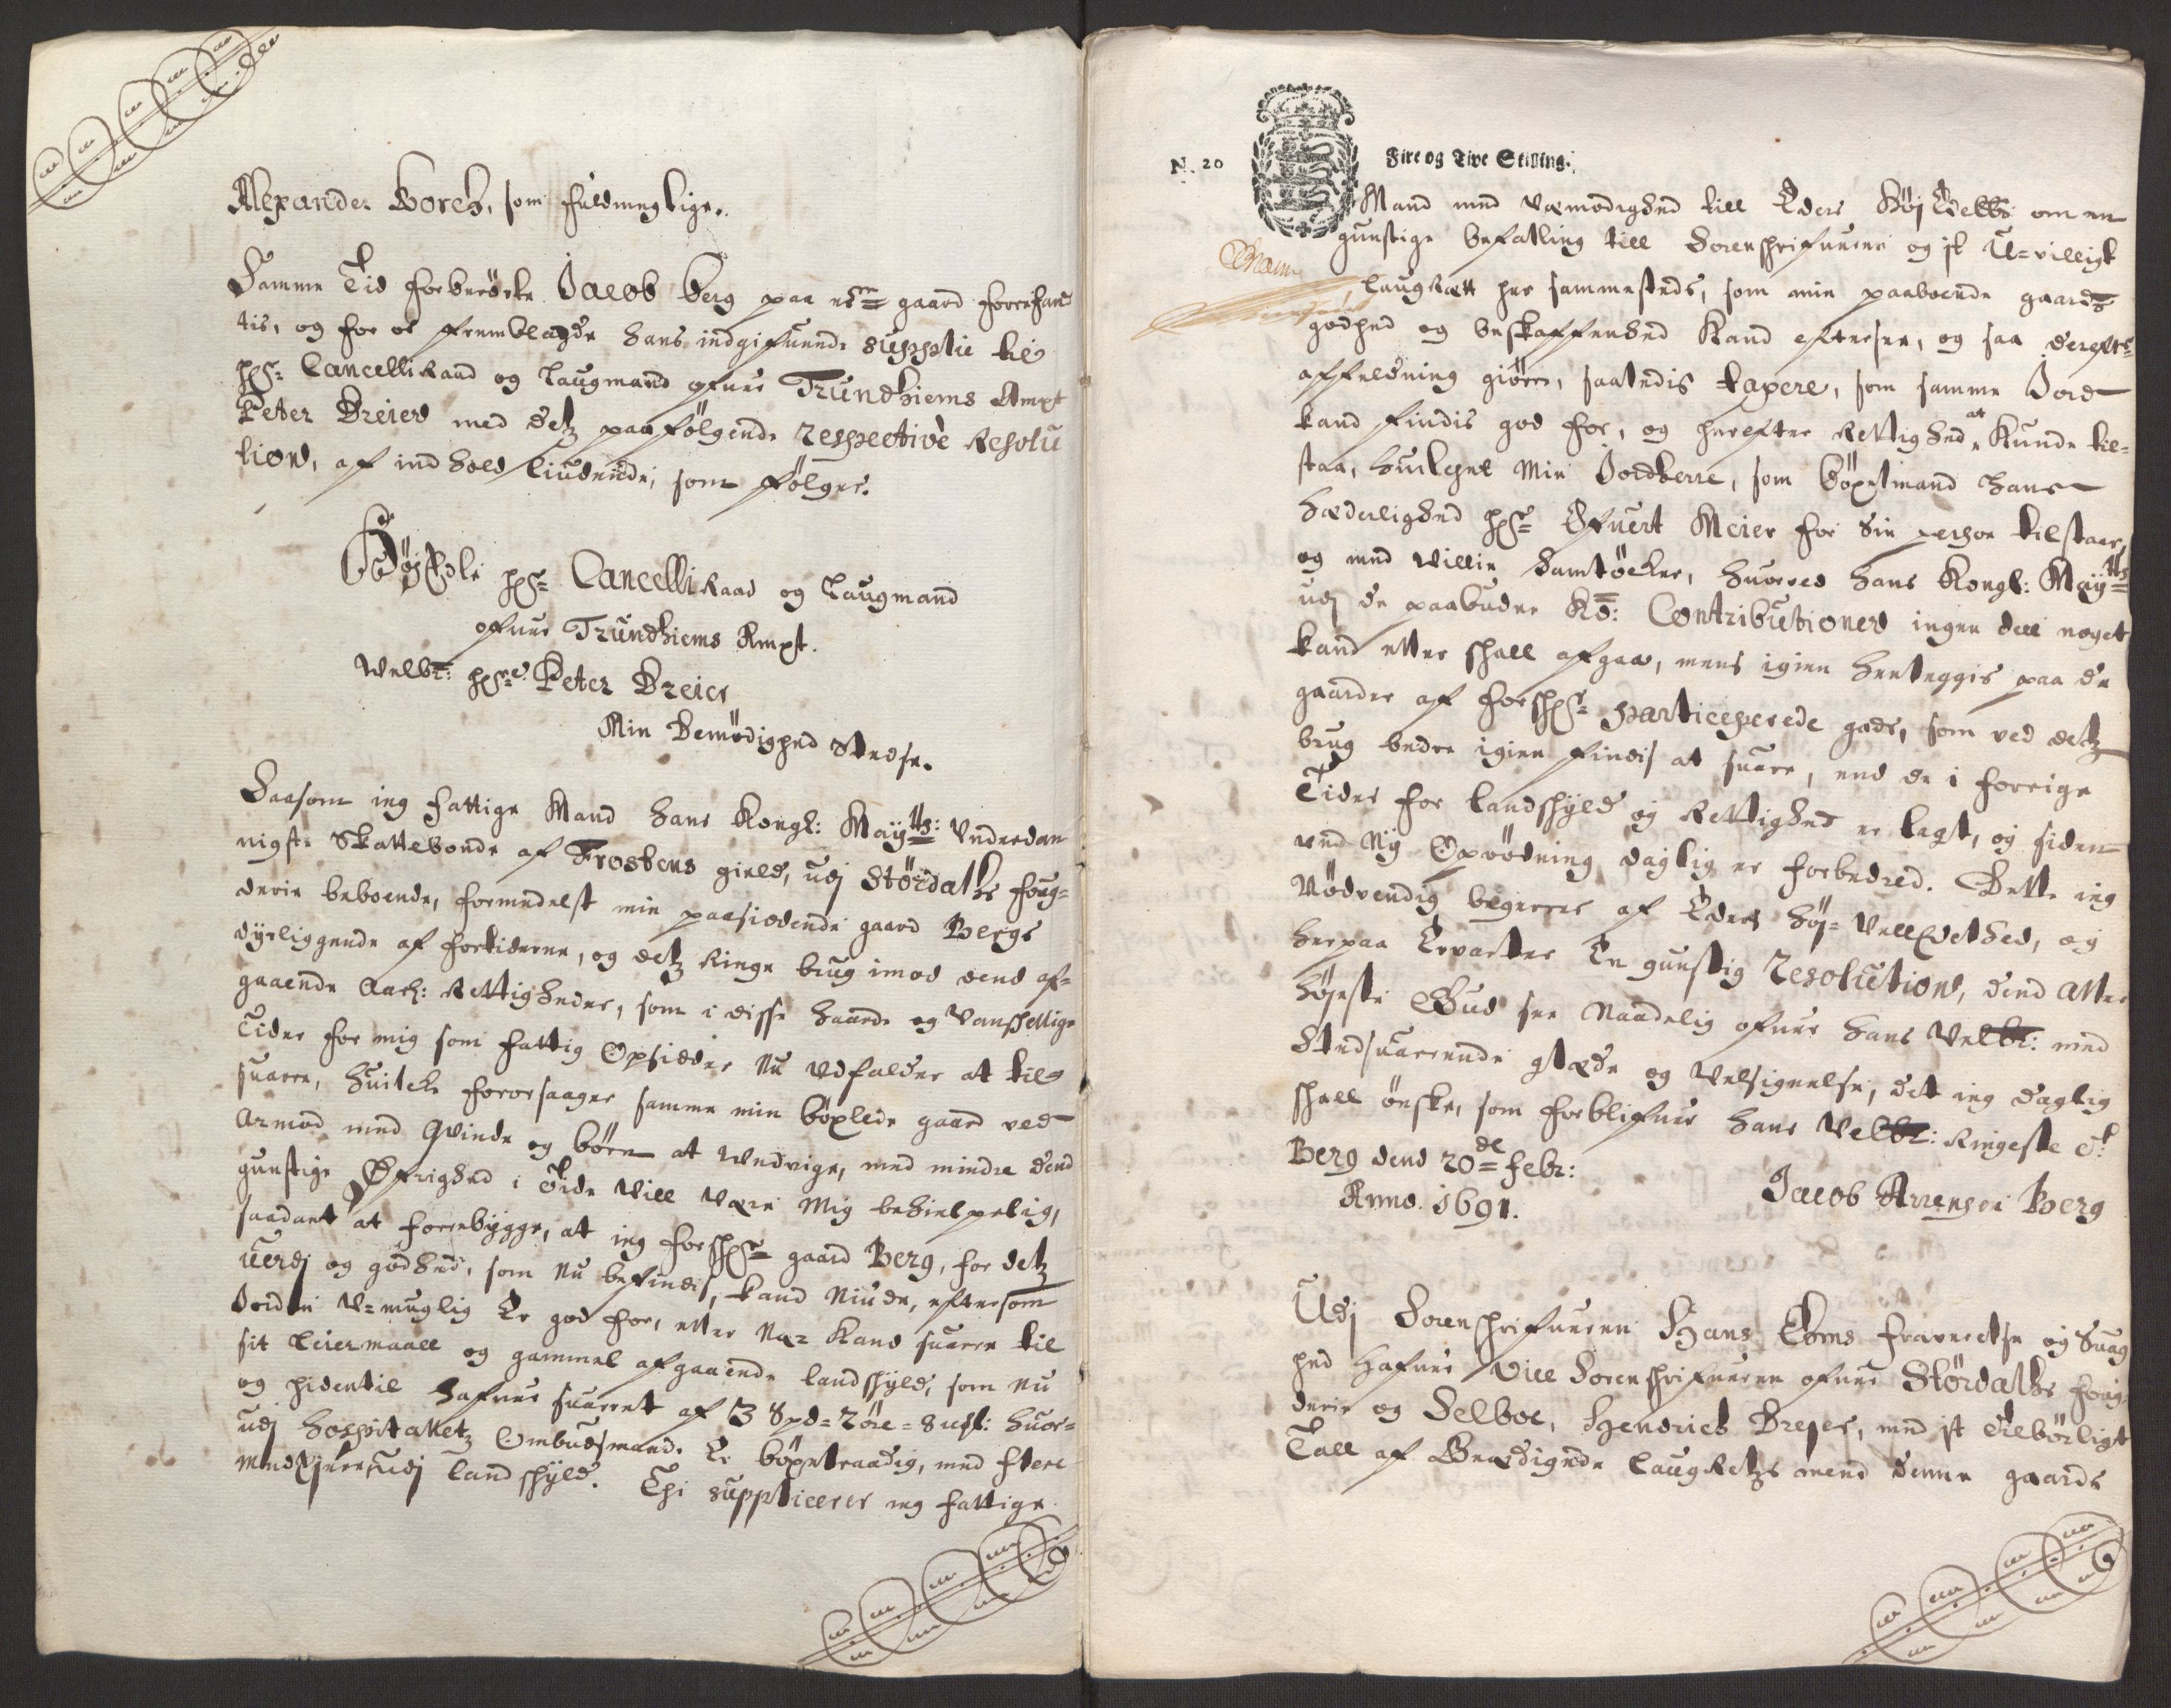 Alexander Borch, som fuldmegtige.
Samme Tid forberörte Jacob Berg paa ndr gaard forrefant
tis, og for os frembeagde hans indgifuende supplic til
hr: Cancelli Raad og Laugmand ofuer Trundhiems Ampt
Peter Dreier med detz paafölgende respective Resolu
tion, af indhold liudende, som fölger.
Höj Edle hr: Cancelli Raad og Laugmand
ofuer Trundhiems Ampt.
Welbr: hr: Peter Dreier
Min Demödighed Stedse.
Saasom ieg fattige Mand hans Kongl: Maytts: Underdan
nigste Skattebonde af Frostens gield, udj Stördahls foug-
derie beboende, formedelst min paasiddende gaard Bergs
dyrliggende af fortiderne, og detz Ringe brug imod dend af-
gaaende Aarl: Rettigheder, som i disse haarde og Vanschellige
Tider for mig som fattig Opsidder Nu Udfalder at til-
suarre, huilche foraarsaager samme min böxlede gaard ved
armod med Qvinde og börn at Undvige, med mindre dend
gunstige Öfrighed i Tide Vill Være Mig behielpelig,
saadant at forrebygge, at ieg forschr: gaard Berg, for detz
Uerdj og godhed, som Nu befindis, kand Niude, eftersom
Jorden U-muglig Er god for, etter Nær Kand suarre til
sit Leiermaall og gammel afgaaende landschyld, som Nu
og hidentil hafuer suarret af 3 Spd- 2 öre- 8 mkl: huor-
udj hospitalletz Ombudsmand. Er böxelraadig, med flere
Medejere udj landschyld. Thi supplicerer ieg fattige
N. 20
Fire og Tive Skilling.
Mand med Ydmödighed till Eders Höj Edelhd: om en
gunstige befalling till Sorenschrifueren og it U-villigt
Laug Rett her sammesteds, som min paaboende gaards
godhed og beskaffenhed Kand efftersee, og saa derefter
affeldning giörre, saaledis taxere, som samme Jord
kand findis god for, og herefter Rettighed at Kunde til-
staa, huilchet Min Jordherre, som böxelmand hans
hæderlighed hr: Ofuert Meier for Sin person tilstaar,
og med Villie Samtöcker, huorved hans Kongl: Maytts
udj de paabudne Kd: Contributioner ingen dell noget
kand etter schall afgaa, mens igien henleggis paa de
gaarder af forschr: participerede gods, som ved detz
brug bedre igien findis at suare, end de i forrige
Tider for landschyld og Rettighed er lagt, og siden
ved Ny Oprödning daglig er forbedred. Dette ieg
Nödvendig begierer af Eders höj- Velledelhed, og
herpaa Ervarter En gunstig Resolution, dend aller
höjeste Gud see Naadelig ofuer hans Velbr: med
Stedsuarrende glæde og Velsignelse, det ieg daglig
schall önske, som forblifuer hans Velbr: Ringeste T:
Berg dend 20de febr:
Anno. 1691.
Jacob Arrensen Berg
Udj Sorenschrifueren Hans Toms fraverelse og Suag
hed hafuer Vice Sorenschrifueren ofuer Stördahls foug
derie og Selboe, Hendrich Dreyer, med it tilbörligt
Tall af Beædigede Laug Retzs mend denne gaards